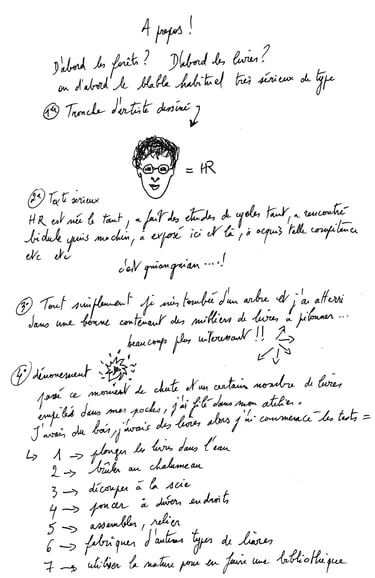 A propos !
D'abord les forêts ? D'abord les livres ?
ou d'abord le blabla habituel très sérieux de type
1° Tronche d'artiste dessiné
= HR
2° Texte sérieux
HR est née le tant, a fait des études de cycles tant, a rencontré
bidule puis machin, a exposé ici et là, a acquis telle compétence
etc etc
c'est gnangnan ....!
3° Tout simplement je suis tombée d'un arbre et j'ai atterri
dans une benne contenant des milliers de livres à pilonner ...
beaucoup plus intéressant !!
4° dénouement
passé ce moment de chute et un certain nombre de livres
empilés dans mes poches, j'ai filé dans mon atelier.
J'avais du bois, j'avais des livres alors j'ai commencé les tests =
↳ 1 → plonger les livres dans l'eau
2 → brûler au chalumeau
3 → découper à la scie
4 → poncer à divers endroits
5 → assembler, relier
6 → fabriquer d'autres types de livres
7 → utiliser la nature pour en faire une bibliothèque